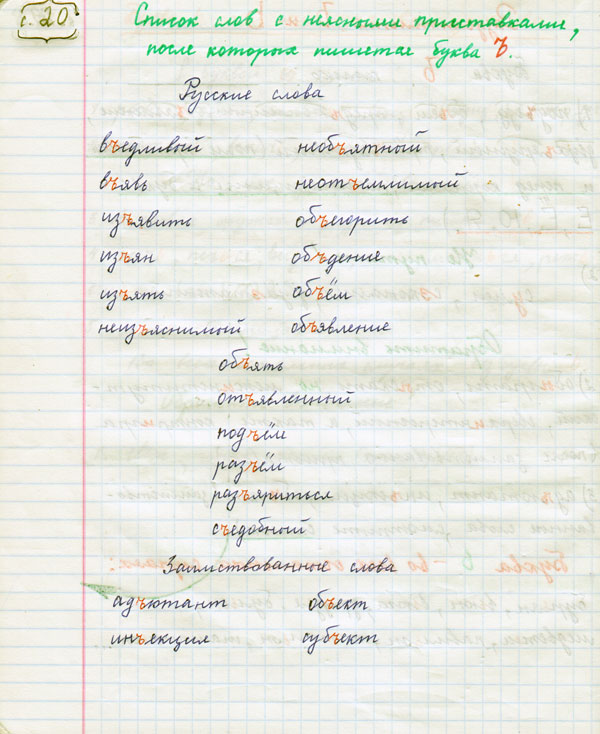 с. 20.
Список слов с неясными приставками,
после которых пишется буква Ъ.
Русские слова
въедливый необъятный
въявь неотъемлимый
изъявить объегорить
изъян объедение
изъять объём
неизъяснимый объявление
объять
отъявленный
подъём
разъём
разъяриться
съедобный
Заимствованные слова
адъютант объект
инъекция субъект